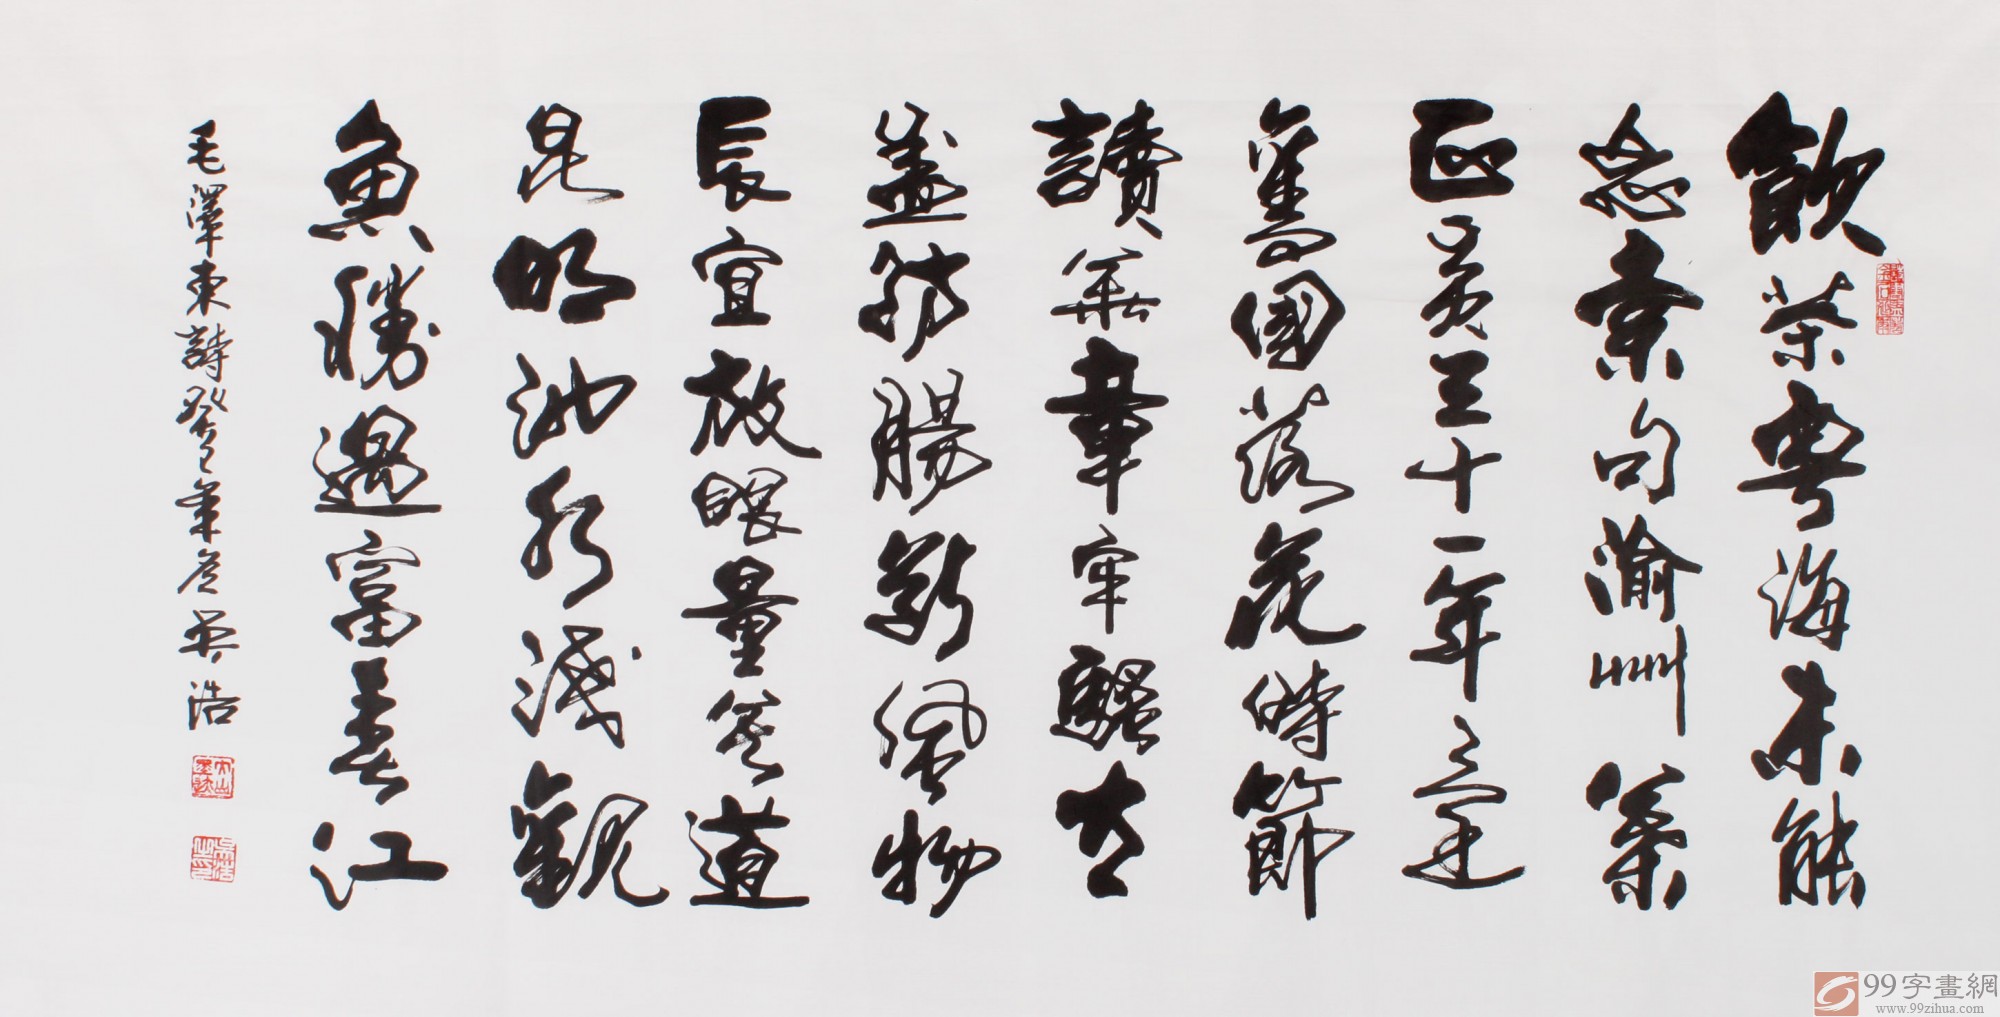 飲茶粤海未能
忘索句渝州葉
正黄三十一年還
舊國落花時節
讀華章牢騷太
盛防腸斷風物
長宜放眼量莫道
昆明池水淺觀
魚勝過富春江
毛澤東詩癸巳年夏吴浩
99字畫網
www.99zihua.com